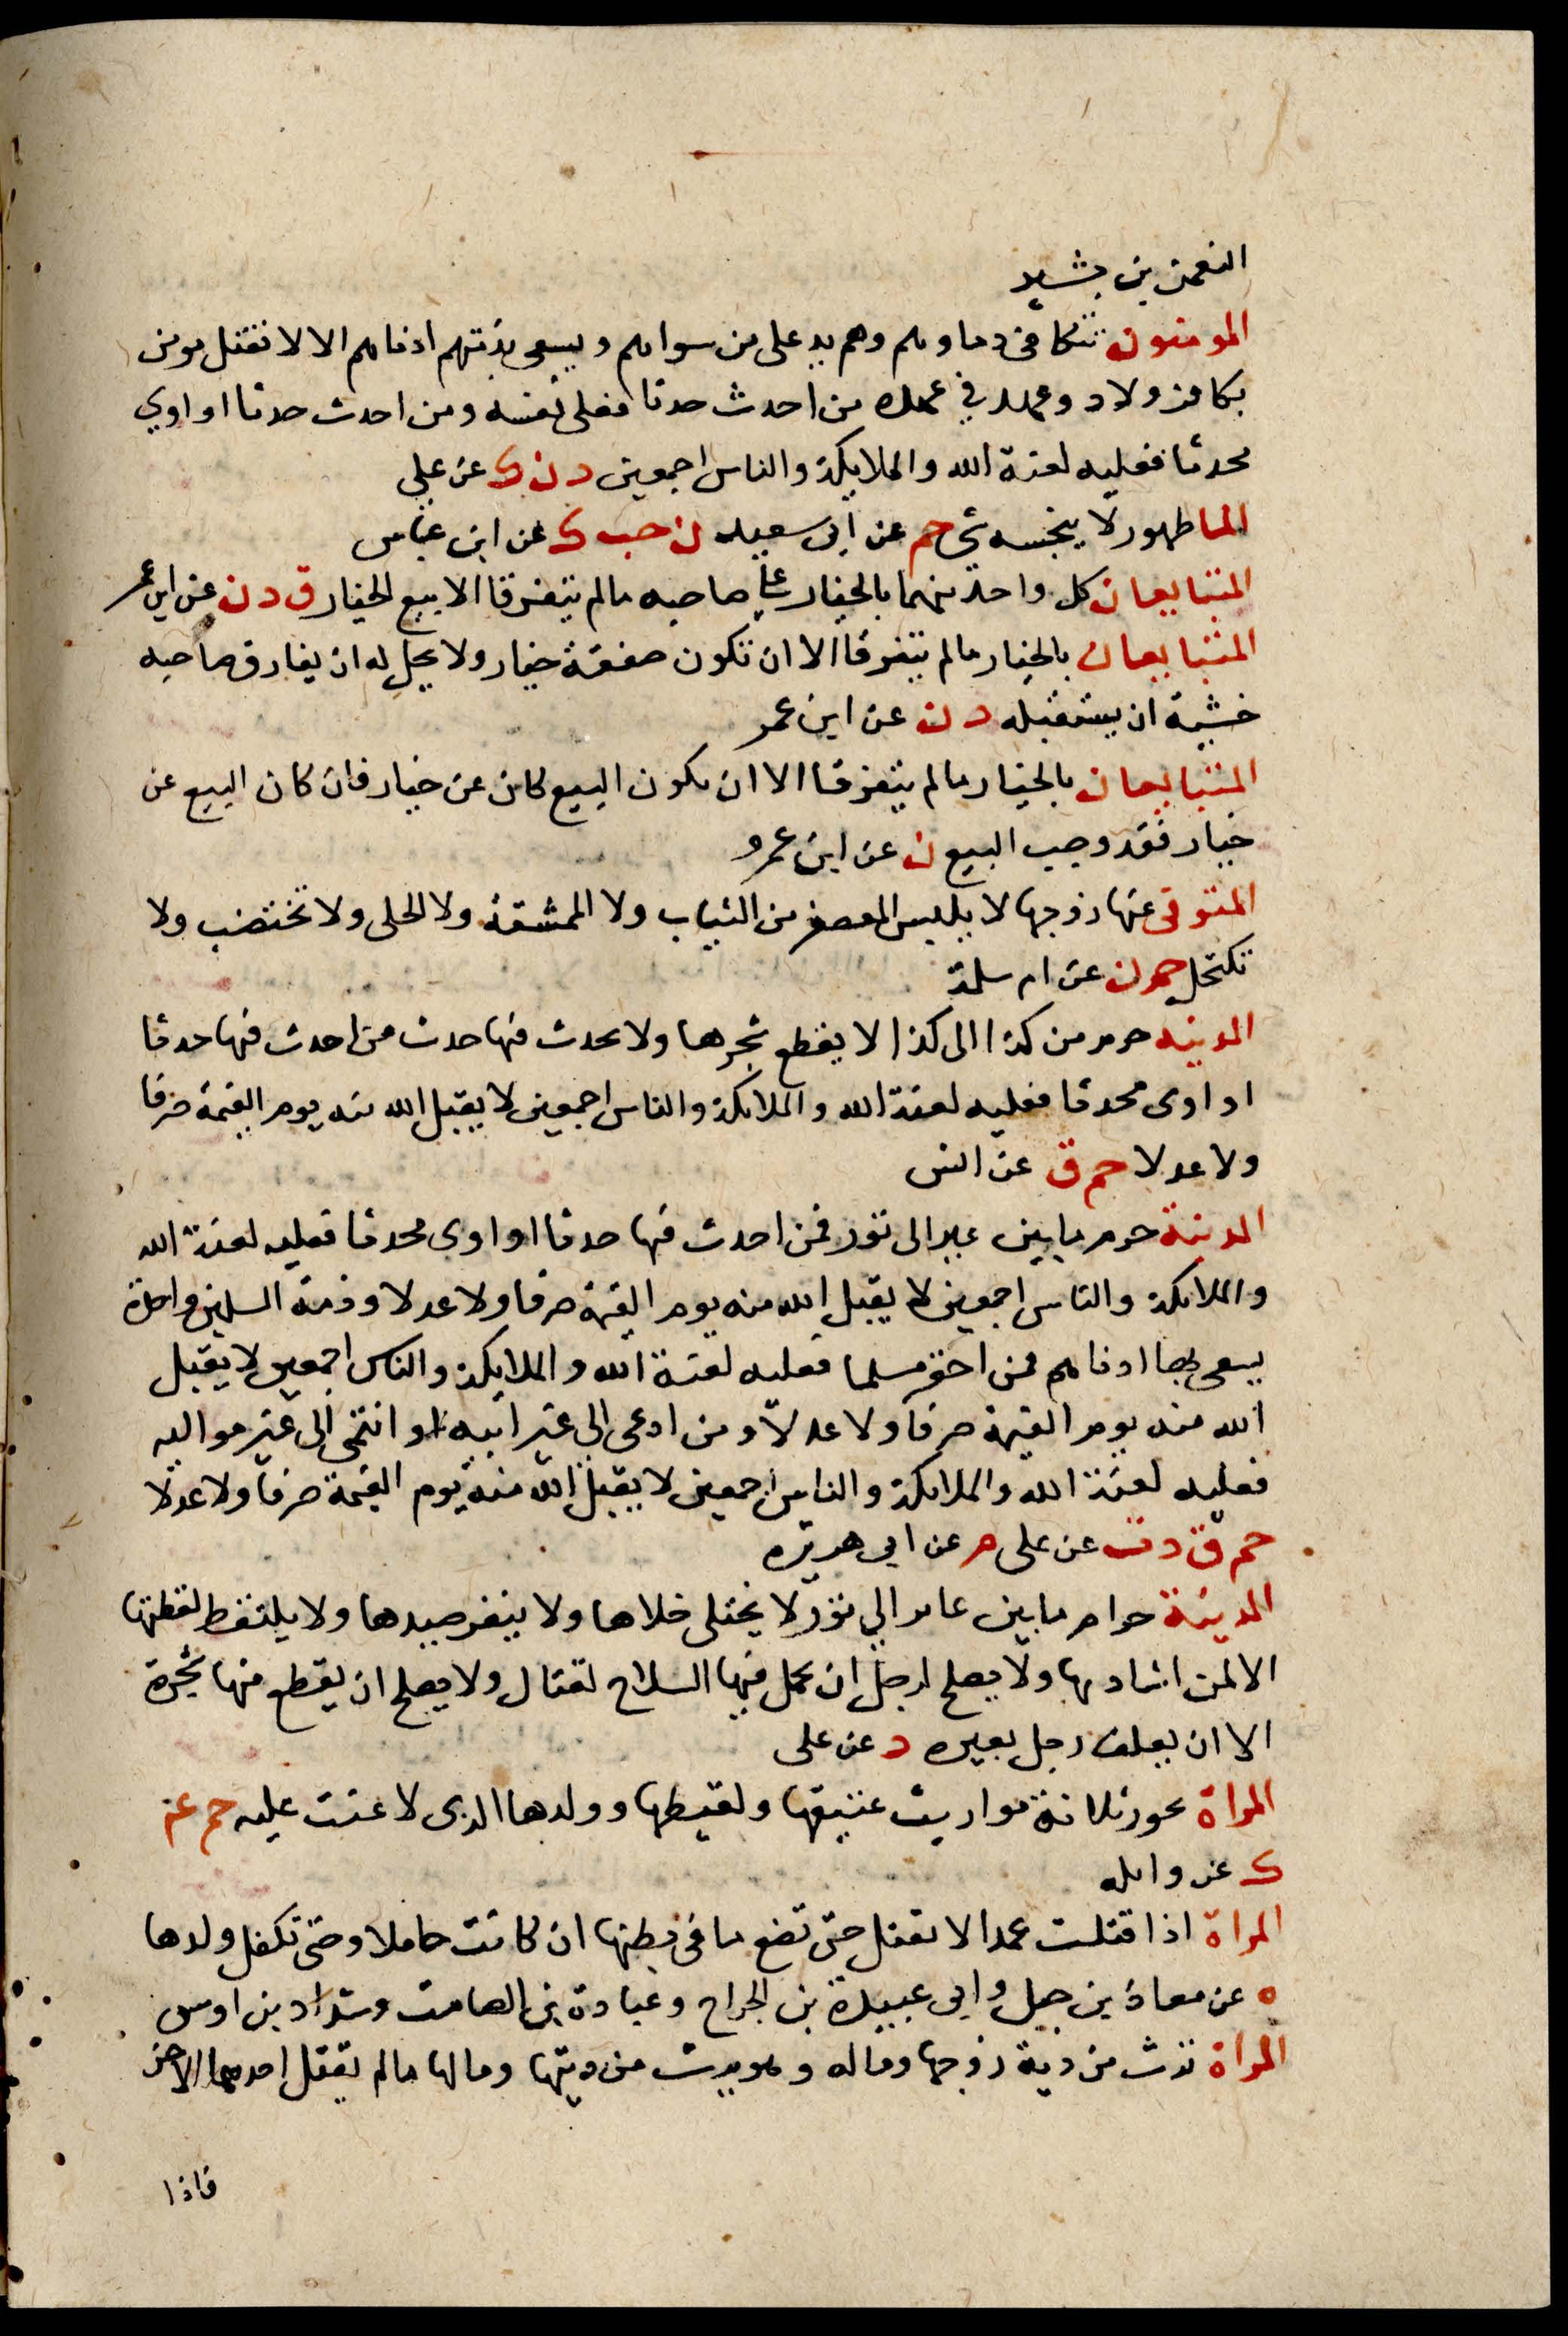 النعمن بن بشير
المومنون تتكافى دماوهم وهم يد على من سواهم ويسعى بذمتهم ادناهم الا لا تقتل مومن
بكافر ولا ذو عهد في عهده من احدث حدثا فعلى نفسه ومن احدث حدثا او اوي
محدثا فعليه لعنة الله والملايكة والناس اجمعين د ن ك عن علي
الما طهور لا ينجسه شي حم عن ابي سعيد ن حب ك عن ابن عباس
المتبايعان كل واحد منهما بالخيار على صاحبه مالم يتفرقا الا بيع الخيار ق د ن عن ابن عمر
المتبايعان بالخيار مالم يتفرقا الا ان تكون صفقة خيار ولا يحل له ان يفارق صاحبه
خشية ان يستقيله د ن عن ابن عمر
المتبايعان بالخيار مالم يتفرقا الا ان يكون البيع كان عن خيار فان كان البيع عن
خيار فقد وجب البيع ن عن ابن عمرو
المتوفى عنها زوجها لا يلبس المعصفر من الثياب ولا الممشقة ولا الحلى ولا تختضب ولا
تكتحل حم د ن عن ام سلمة
المدينه حرم من كذا الى كذا لا يقطع شجرها ولا يحدث فيها حدث من احدث فيها حدثا
او اوى محدثا فعليه لعنة الله والملايكة والناس اجمعين لا يقبل الله منه يوم القيمة صرفا
ولا عدلا حم ق عن انس
المدينة حرم ما بين عير الى ثور فمن احدث فيها حدثا او اوى محدثا فعليه لعنة الله
والملايكة والناس اجمعين لا يقبل الله منه يوم القيمة صرفا ولا عدلا وذمة المسلمين واحدة
يسعى بها ادناهم فمن اخفر مسلما فعليه لعنة الله والملايكة والناس اجمعين لا يقبل
الله منه يوم القيمة صرفا ولا عدلا ومن ادعى الى غير ابيه او انتمى الى غير مواليه
فعليه لعنة الله والملايكة والناس اجمعين لا يقبل الله منه يوم القيمة صرفا ولا عدلا
حم ق د ت عن على م عن ابي هريره
المدينة حرام ما بين عاير الي ثور لا يختلى خلاها ولا ينفر صيدها ولا يلتقط لقطتها
الا لمن اشاد بها ولا يصلح لرجل ان يحمل فيها السلاح لقتال ولا يصلح ان يقطع منها شجرة
الا ان يعلف رجل بعيره د عن على
المراة تحوز ثلاثة مواريث عتيقها ولقيطها وولدها الذى لاعنت عليه حم عم
ك عن واثله
المراة اذا قتلت عمدا لا تقتل حتى تضع ما فى بطنها ان كانت حاملا وحتى تكفل ولدها
ه عن معاذ بن جبل وابى عبيدة بن الجراح وعبادة بن الصامت وشداد بن اوس
المراة ترث من دية زوجها وماله وهو يرث من ديتها ومالها مالم يقتل احدهما الاخر
فاذا